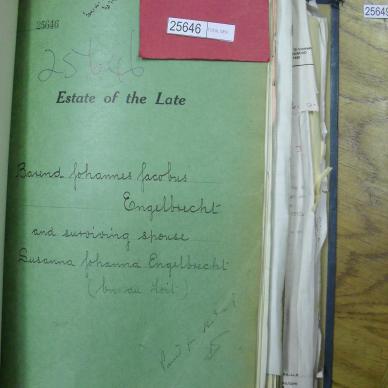 25646
25646
25646
25646
Estate of the Late
Barend Johannes Jacobus
Engelbrecht
and surviving spouse
Susanna Johanna Engelbrecht